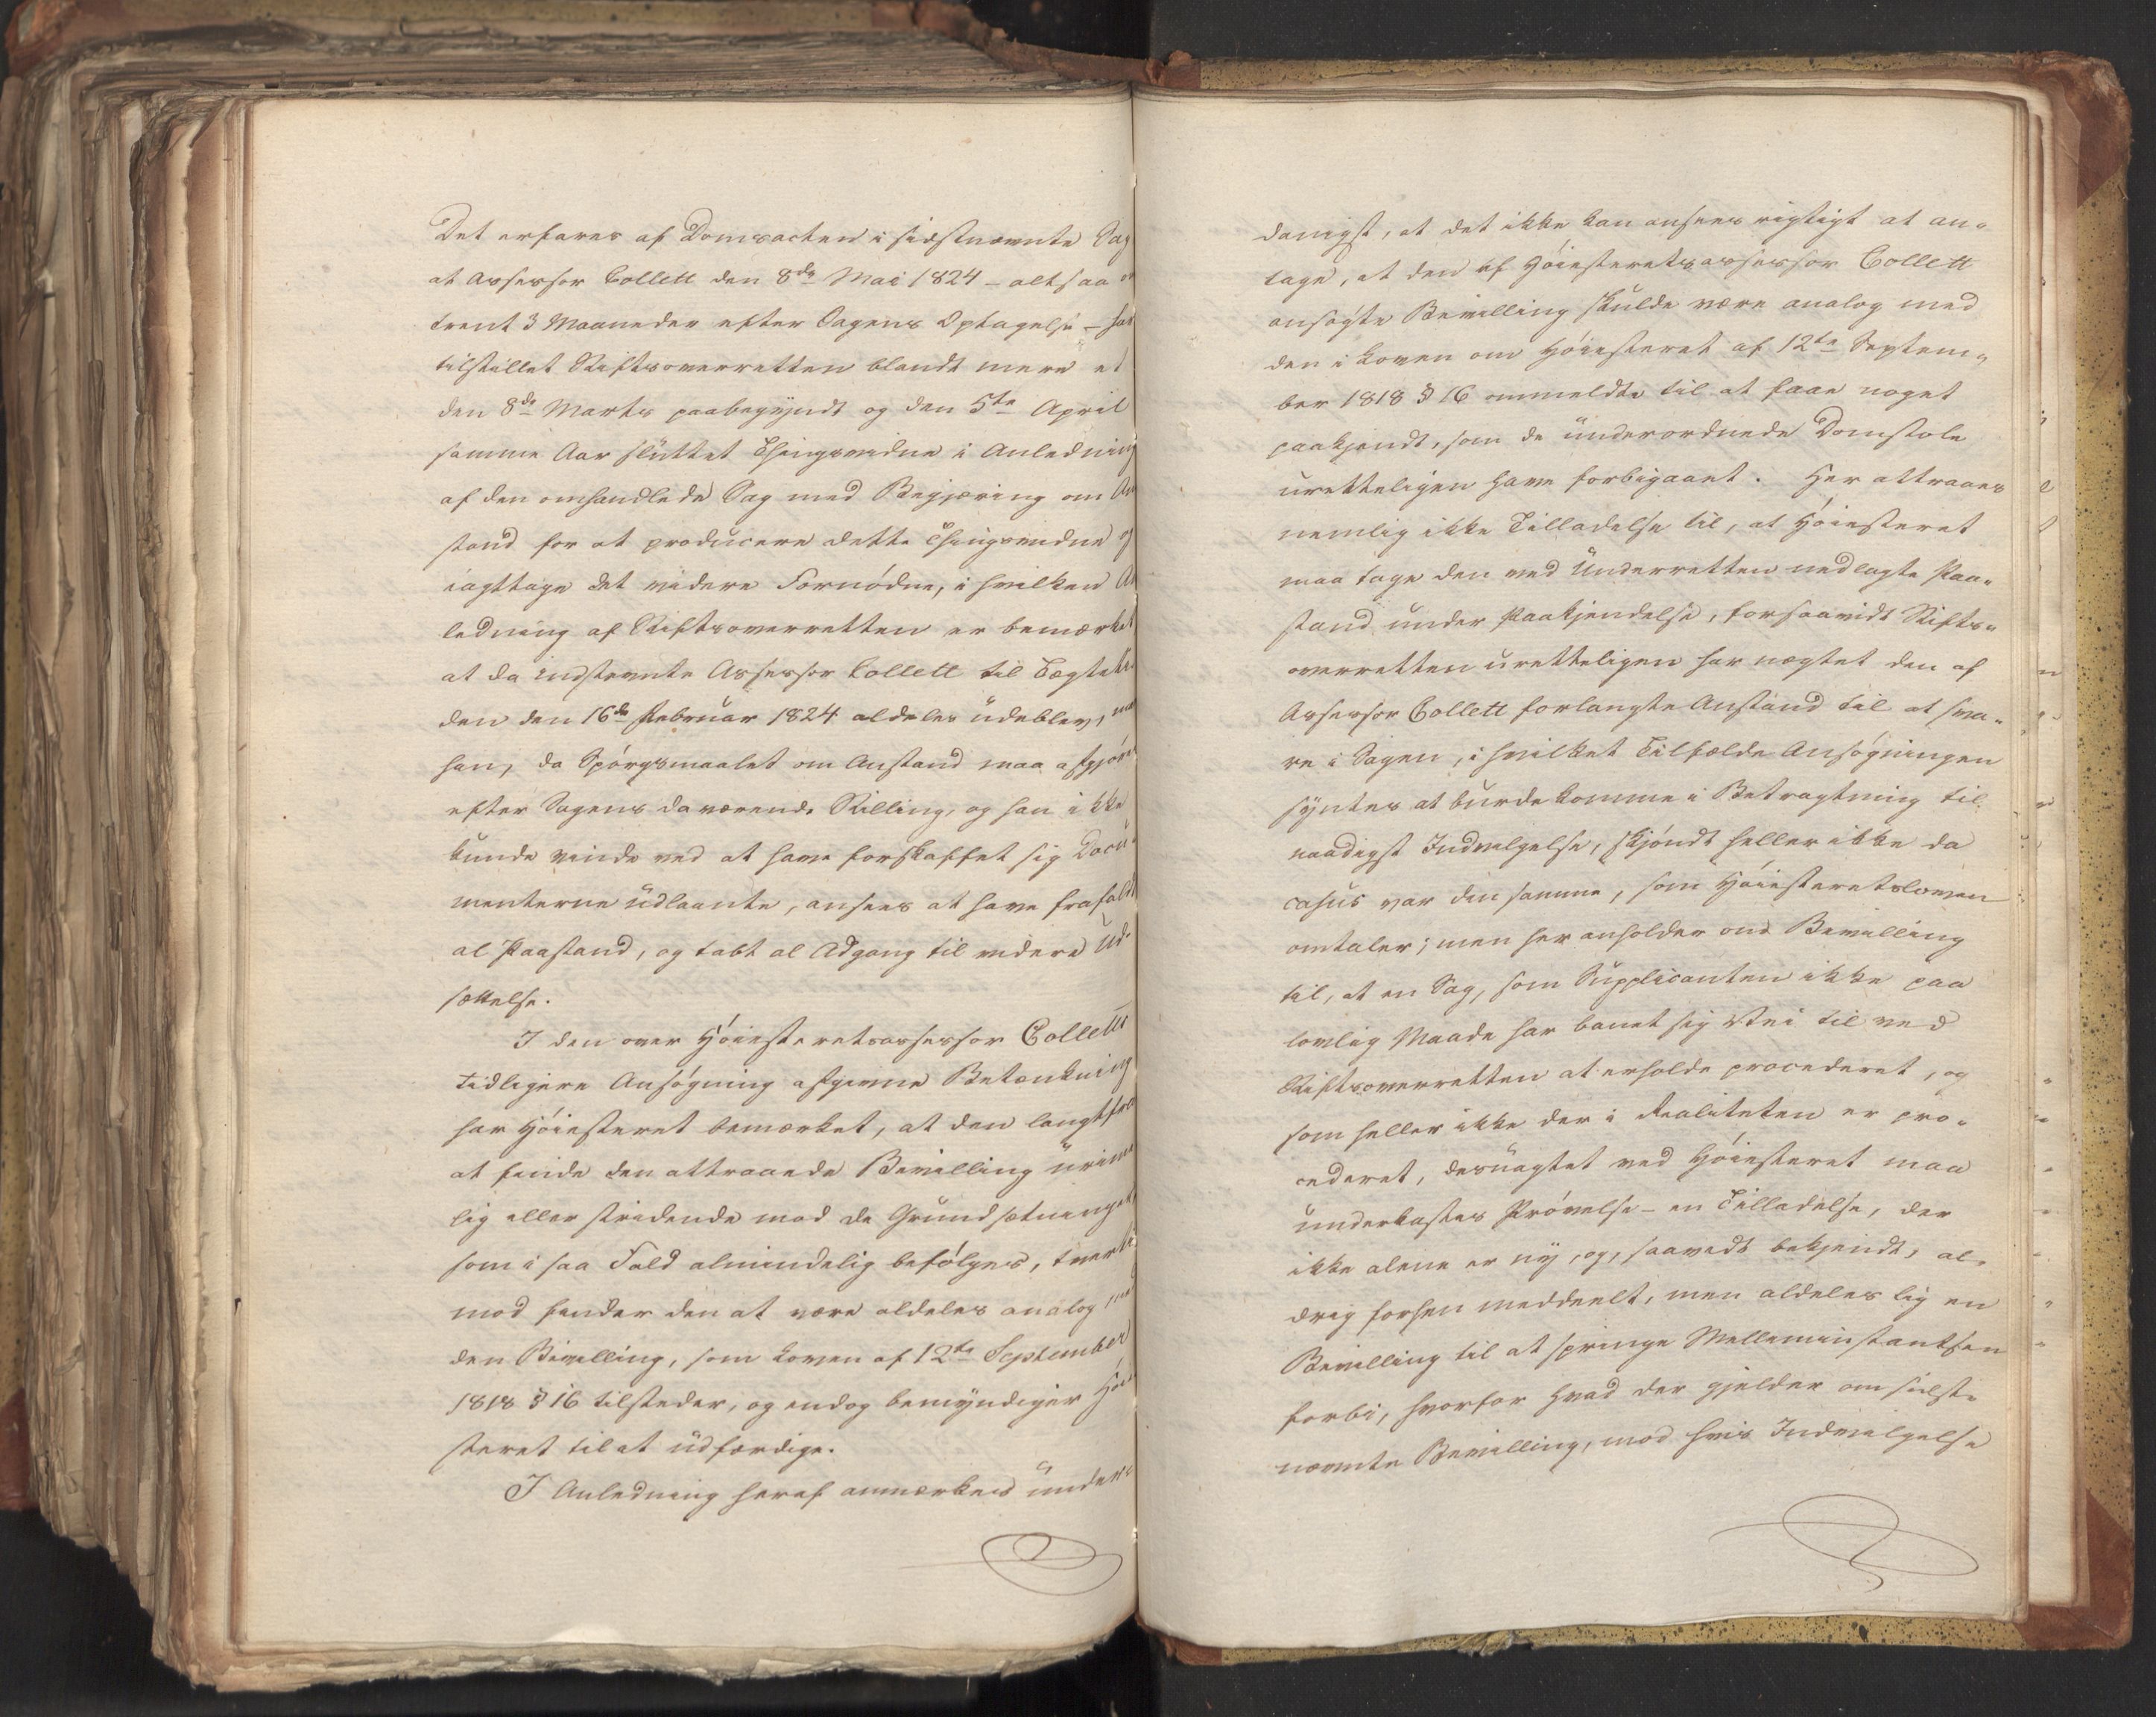 Det erfares af Domsacten i sidstnævnte Sag
at Assessor Collett den 8de Mai 1824 – altsaa
trent 3 Maaneder efter Sagens Optagelse – har
tilstillet Stiftsoverretten blandt mere et
den 8de Marts paabegyndt og den 5te April
samme Aar sluttet Thingsvidne i Anledning
af den omhandlede Sag med Begjæring om An
stand for at producere dette Thingsvidne og
iagttage det videre Fornødne, i hvilken An
ledning af Stiftsoverretten er bemærket
at da Indstevnte Assessor Collett til Tægteti
den den 16de Februar 1824 aldeles udeblev,
han, da Spørgsmaalet om Anstand maa afgjøres
efter Sagens daværende Stilling, og han ikke
kunde vinde ved at have forskaffet sig Docu
menterne udlaante, ansees at have frafaldt
al Paastand, og tabt al Adgang til videre Ud-
sættelse.
I den over Høiesteretsassessor Colletts
tidligere Ansøgning afgivne Betænkning
har Høiesteret bemærket, at den langtfra
at finde den attraaede Bevilling urime
lig eller stridende mod de Grundsætninger
som i saa Fald almindelig befølges, tverti
mod finder den at være aldeles analog med
den Bevilling, som Loven af 12te September
1818 § 16 tilsteder, og endog bemyndiger Høie
steret til at udfærdige.
I Anledning heraf anmærkes under-
danigst, at det ikke kan ansees rigtigt at an-
tage, at den af Høiesteretsassessor Collett
ansøgte Bevilling skulde være analog med
den i Loven om Høiesteret af 12te Septem-
ber 1818 § 16 ommeldte til at faae noget
paakjendt, som de underordnede Domstole
uretteligen have forbigaaet. Her attraaes
nemlig ikke Tilladelse til, at Høiesteret
maa tage den ved Underretten nedlagte Paa-
stand under Paakjendelse, forsaavidt Stifts-
overretten uretteligen har nægtet den af
Assessor Collett forlangte Anstand til at sva-
re i Sagen, i hvilket Tilfælde Ansøgningen
syntes at burde komme i Betragtning til
naadigst Indvilgelse, skjøndt heller ikke da
casus var den samme, som Høiesteretsloven
omtaler; men her anholdes om Bevilling
til, at en Sag, som Supplicanten ikke paa
lovlig Maade har banet sig Vei til ved
Stiftsoverretten at erholde procederet, og
som heller ikke der i Realiteten er pro-
cederet, desuagtet ved Høiesteret maa
underkastes Prøvelse – en Tilladelse, der
ikke alene er ny, og, saavidt bekjendt, al-
drig forhen meddeelt, men aldeles lig en
Bevilling til at springe Melleminstantsen
forbi, hvorfor hvad der gjelder om sidst-
nævnte Bevilling, mod hvis Indvilgelse